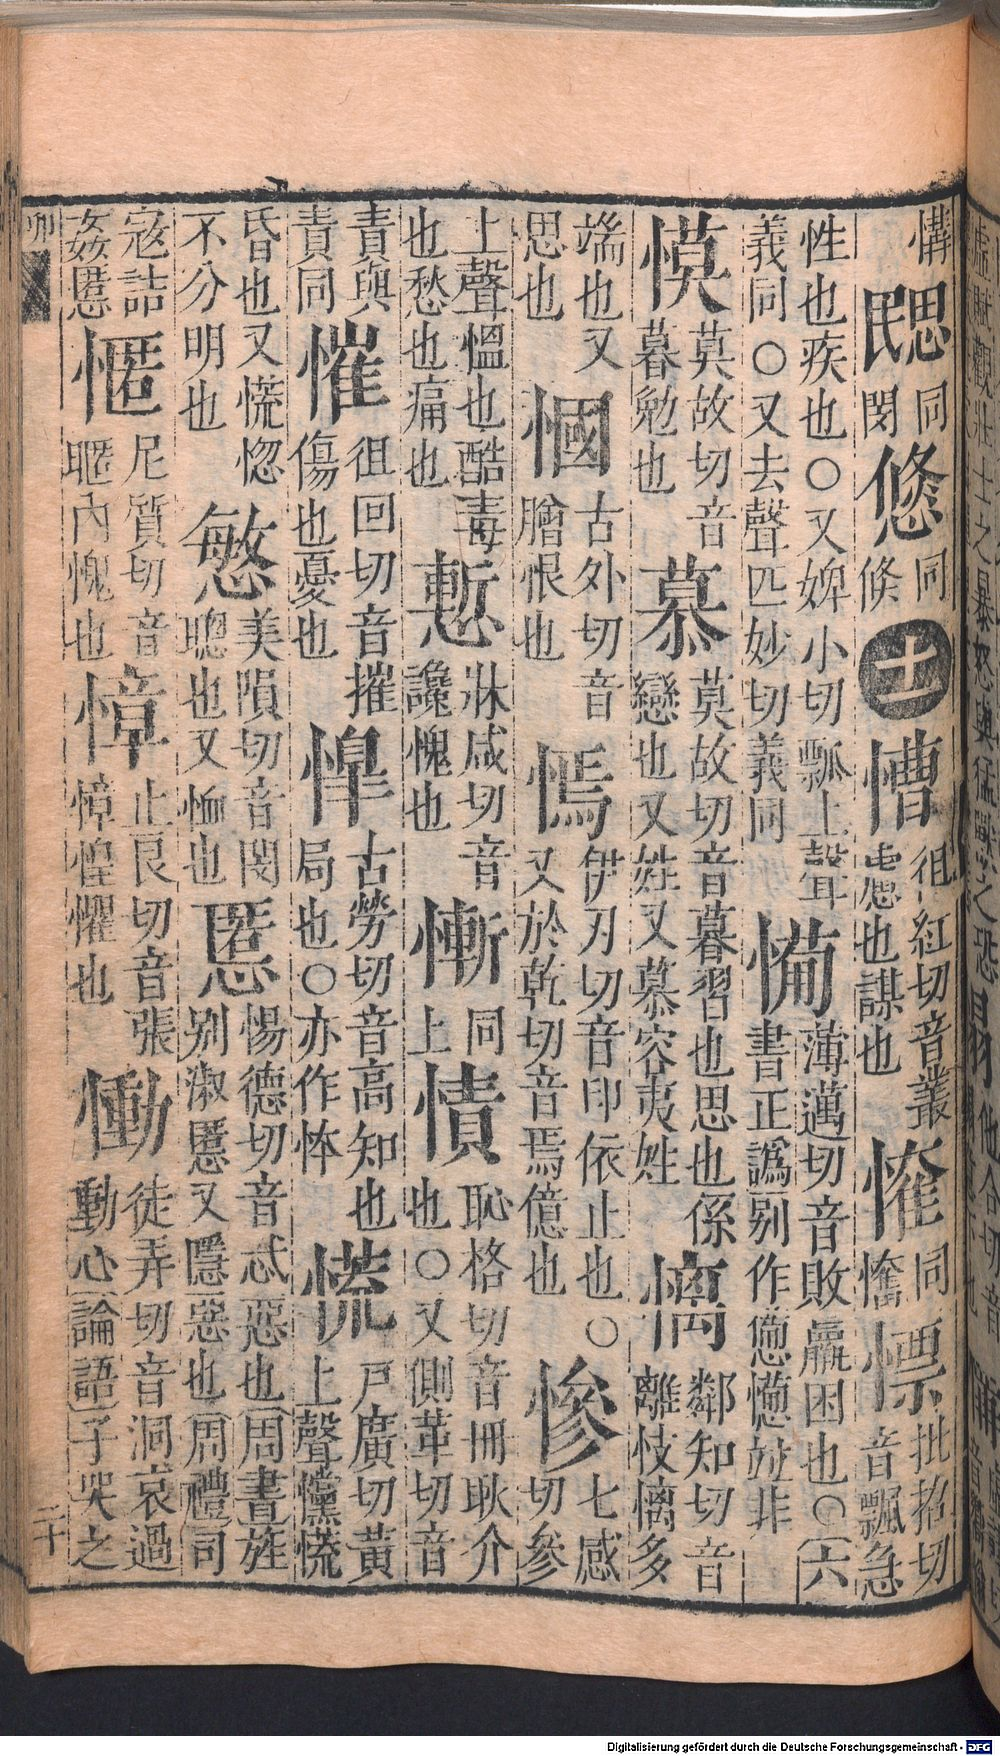 慲
𢢼同閔悠同倏十一慒徂紅切音叢慮也謀也慛同慞慓批招切音飄急
性也疾也○又婢小切瓢上聲
義同○又去聲匹妙切義同㥬薄邁切音敗羸困也○六
書正譌別作憊㦬𠀤非
慔莫故切音暮勉也慕莫故切音暮習也思也係
戀也又姓又慕容夷姓㒧鄰知切音離忮㒧多
端也又思也慖古外切音膾恨也㥼伊刃切音印依止也○
又於乾切音焉億也慘七感切參
上聲慍也酷毒也愁也痛也慙牀咸切音讒愧也慚同上㥽恥格切音冊耿介
也○又側革切音責與責同慛徂回切音摧傷也憂也㥛古勞切音高知也
局也○亦作㤓慌戶廣切黃上聲戃慌
昏也又慌惚不分明也慜美隕切音閔聰也又恤也慝惕德切音忒惡也周書旌
別淑慝又隱惡也周禮司
寇詰姦慝㥾尼質切音暱內愧也慞止良切音張慞惶懼也慟徒弄切音洞哀過
動心論語子哭之
卯
二十
Digitalisierung gefördert durch die Deutsche Forschungsgemeinschaft - DFG